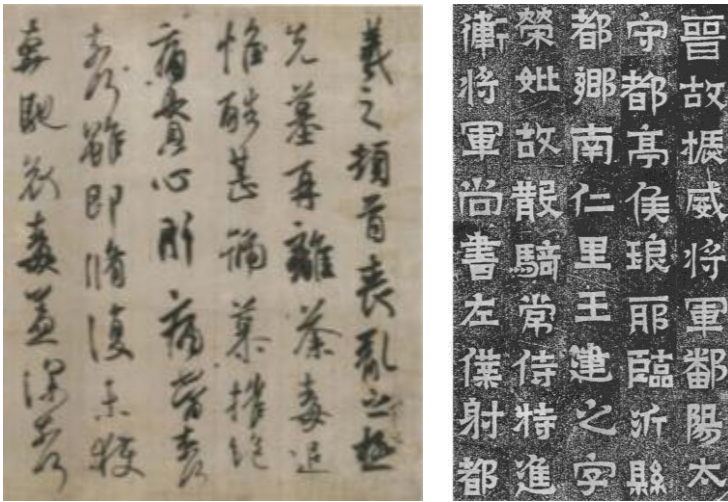 羲之頓首喪亂之極
先墓再離荼毒追
惟酷甚號慕摧絕
痛貫心肝痛當奈何
奈何雖即脩復未獲
奔馳哀毒益深奈何
晉故振威将軍鄱陽太
守都亭侯琅耶臨沂縣
都鄉南仁里王建之字
榮妣故散騎常侍特進
衛将軍尚書左僕射都